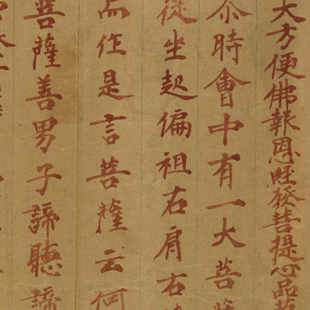 大方便佛報恩經發菩提心品
尒時會中有一大菩薩
從坐起偏袒右肩右
而作是言菩薩云何
菩薩善男子諦聽諦